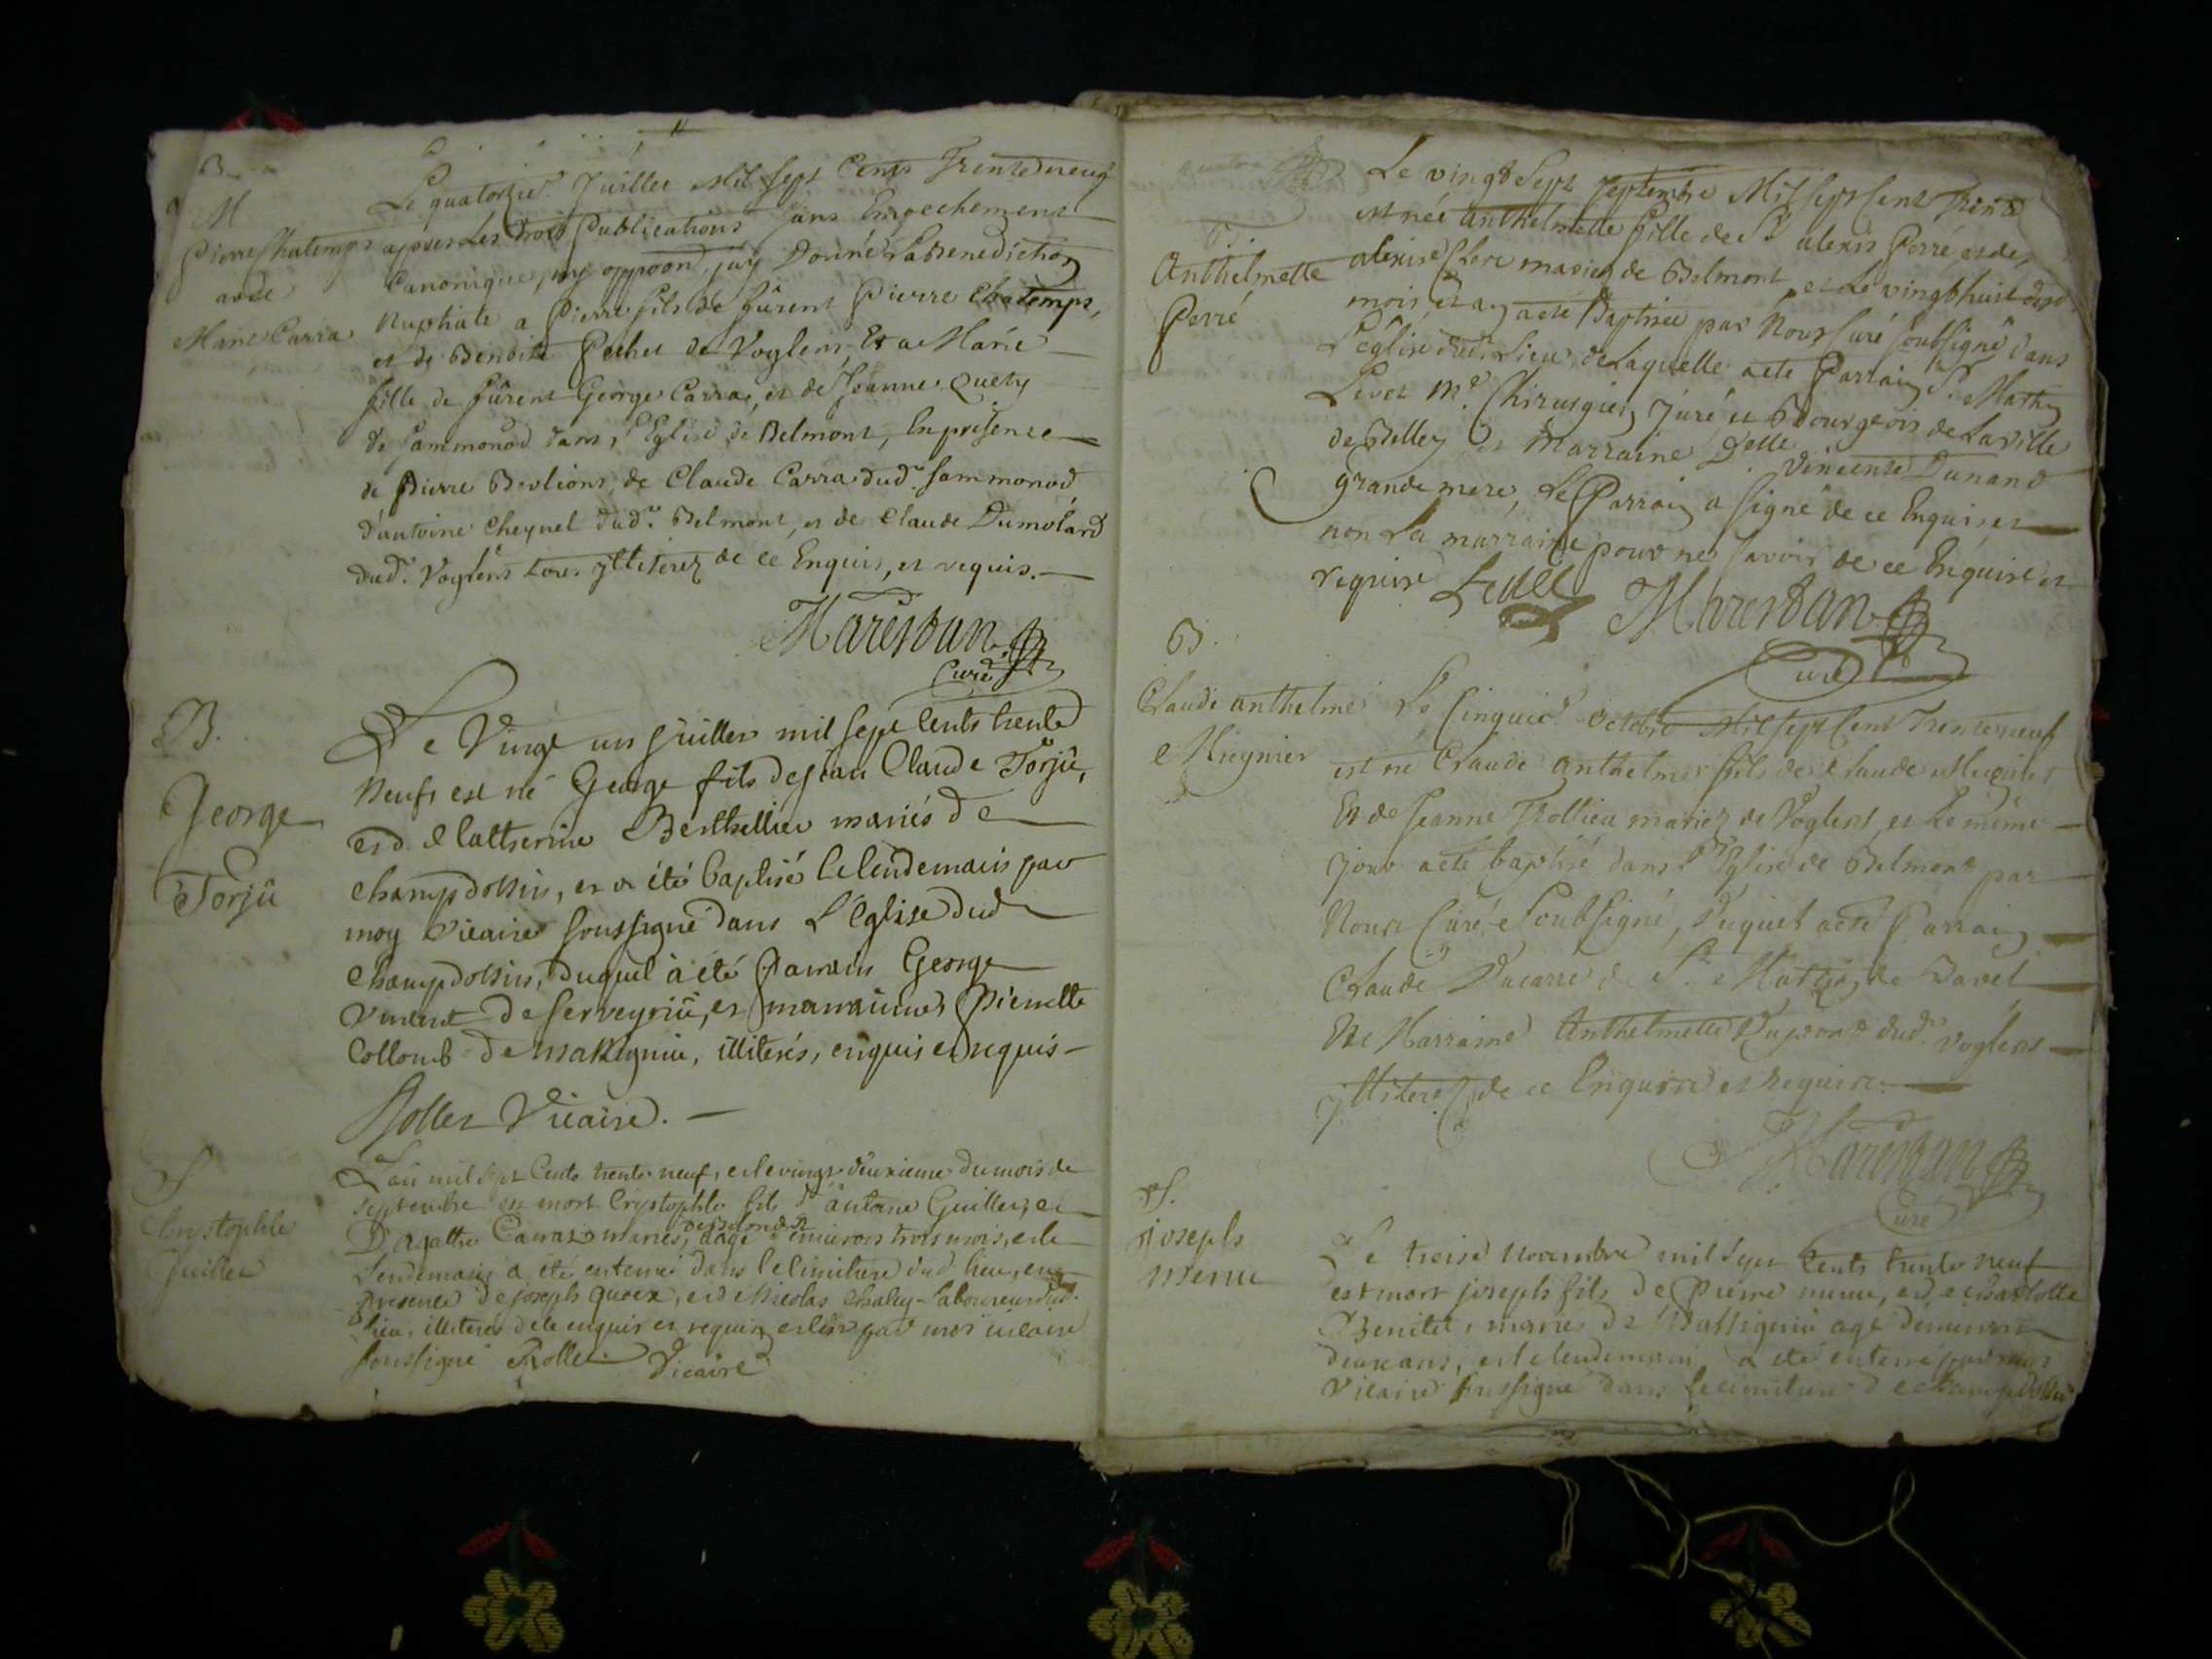 B
M
Pierre Chatemps
avec
Marie Carra
Le quatorzie. Juillet Mil sept Cents Trente neuf
apres les trois Publications sans Empechement
Canonique, ny oppoon, jay Donné La Benediction
Nuptiale a Pierre fils de fûrent Pierre Chatemps,
et de Benoite Pecher de Voglens, Et a Marie
fille de fûrent George Carra, et de Jeanne Quety
de Sammonod dans l'Eglise de Belmont, En presence
de Pierre Berlions, de Claude Carra dud. Sammonod
d'antoine Cheynel dud. Belmont, et de Claude Dumolard
dud. Voglens tous jlliterez de ce Enquis, et requis.
Marestan
Curé
B.
George
Torjû
Le Vingt un juillet mil sept Cents trente
Neuf, est né George fils de jean Claude Torjû,
et d Catherine Berthellier mariés de
champdossin, et a été baptisé le lendemain par
moy vicaire soussigné dans L'Eglise dud
champdossin, duquel à été Parrain George
Vincent de Serveyriû, et marraine Pierrette
Collomb de massigniu, illiterés, enquis et requis
Rollet Vicaire.
S
Christophle
Guillet
L'an mil sept Cents trente neuf, et le vingt deuxieme du mois de
septembre est mort Crystophle fils d'antoine Guillet, et
D'agathe Carraz mariés de Belmont, agé d'environ trois mois, et le
Lendemain a été enterré dans le cimitiere dud. lieu, en
presence de joseph quoex, et de Nicolas chaley laboureur dud.
lieu, illiterés de ce enquis et requis par moi vicaire
soussigné Rollet Vicaire
B
Anthelmette
Perré
Le vingt Sept Septembre Mil sept Cent Trente
est née anthelmette fille de Sr. alexis Perré et de
Clerc mariez de Belmont, et Le vingt huit dud.
mois, et an a eté Baptisée par Nous Curé soubsigné dans
L'église dud. Lieu, de Laquelle a eté Parrain Sr. Mathy
Levet Me. Chirurgien Juré et Bourgeois de La ville
de Belley et Marraine Delle. Vincente Dunand
grande mere, Le Parrain a signé de ce Enquis et
non La marraine pour ne savoir de ce Enquise et
requise Levet Marestan
Curé
B.
Claude anthelme
Mugnier
Le Cinquie. octobre Mil sept Cent Trente neuf
est né Claude anthelme fils de Claude Mugnier
Et de Jeanne Trollieu mariez de Voglens, et Le même
jour a eté baptisé dans l'Eglise de Belmont par
Nous Curé Soubsigné, Duquel a eté Parrain
Claude Ducarre de St. Martin de Bavel
Et Marraine Anthelmette Dupont dud. voglens
jlliterez de ce Enquis et Requis.
Marestan
Curé
S.
joseph
menu
Le treise novembre mil sept Cents trente neuf
est mort joseph fils de Pierre menu, et de Charlotte
Benitet, mariés de Massigniu agé d'environ
deux ans, et le lendemain a été enterré par moi
Vicaire soussigné dans le cimitiere de champdossin